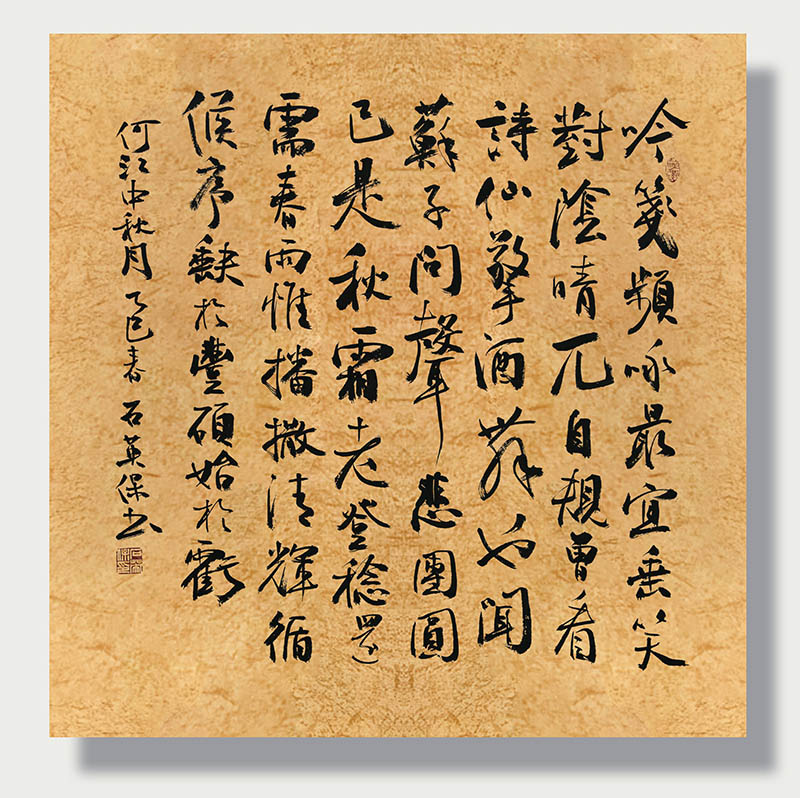 吟箋頻咏最宜垂笑
對陰晴兀自規曾看
詩仙擎酒舞也聞
蘇子問聲悲團圓
已是秋霜老登稔還
需春雨惟播撒清輝循
候序缺於豐碩始於虧
何江中秋月 乙巳春 石英保书